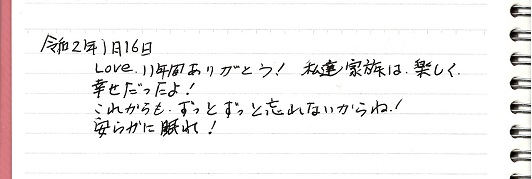 令和2年1月16日
Love.11年間ありがとう! 私達家族は、楽しく、
幸せだったよ!
これからも、ずっとずっと忘れないからね!
安らかに眠れ!